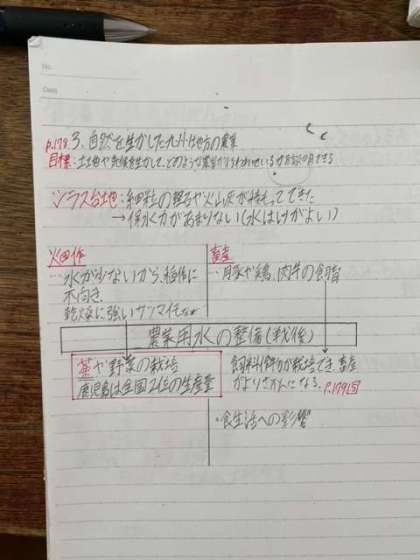 No.
Date
P.178 3. 自然を生かした九州地方の農業
目標:土地や気候を生かして、どのような農業が行われているか説明できる
シラス台地:細粒の軽石や火山灰が積もってできた
→保水力があまりない(水はけがよい)
畑作
…水が少ないから、稲作に
不向き
乾燥に強いサツマイモなど
畜産
…豚や鶏、肉牛の飼育
農業用水の整備(戦後)
茶や野菜の栽培
鹿児島は全国2位の生産量
飼料作物が栽培でき、畜産
がよりさかんになる。P.179図
・食生活への影響